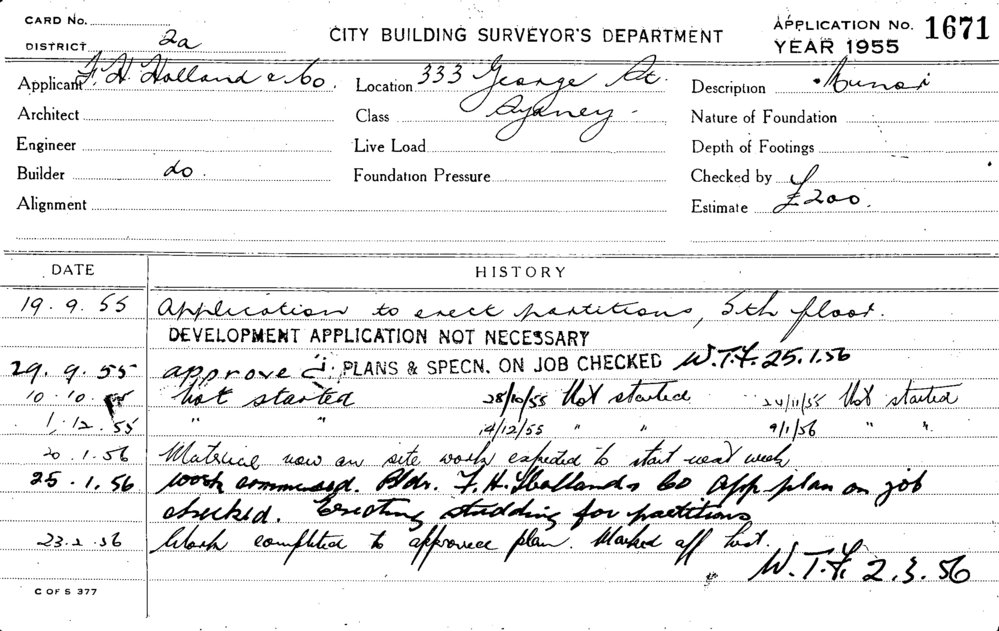 CARD No.
DISTRICT 2a
CITY BUILDING SURVEYOR'S DEPARTMENT
APPLICATION No. 1671
YEAR 1955
Applicant F. H. Holland & Co.
Location 333 George St.
Description Minor
Architect
Class Sydney.
Nature of Foundation
Engineer
Live Load
Depth of Footings
Builder do.
Foundation Pressure
Checked by
Alignment
Estimate £200.
DATE HISTORY
19.9.55 Application to erect partitions, 5th floor.
DEVELOPMENT APPLICATION NOT NECESSARY
29.9.55 approved PLANS & SPECN. ON JOB CHECKED W.T.F. 25.1.56
10.10.55 Not started 28/10/55 Not started 24/11/55 Not started
1.12.55 " " 14/12/55 " " 9/1/56 " "
20.1.56 Material now on site work expected to start next week
25.1.56 work commenced. Bldr. F. H. Hollands Co App plan on job
checked. Erecting studding for partitions
23.2.56 Work completed to approved plan. Marked off list.
W.T.F. 2.3.56
C OF S 377